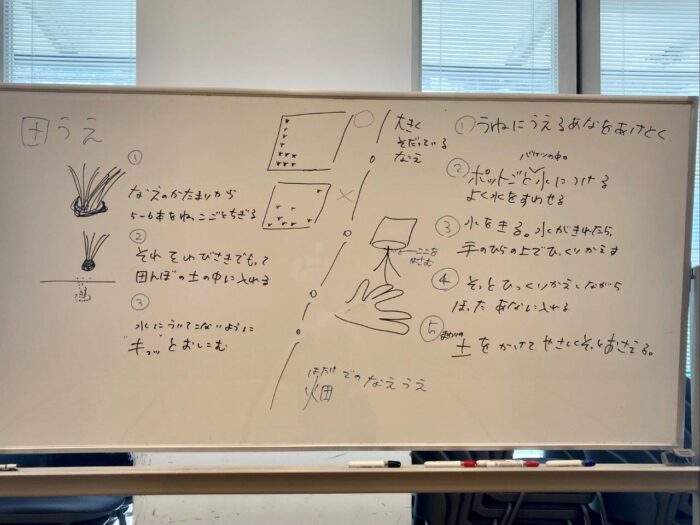 田うえ
①
なえのかたまりから
5-6本をね、こごとちぎる
②
それをゆびさきでもって
田んぼの土の中に入れる
③
水にういてこないように
"ギュッ"とおしこむ
大きく
そだっている
なえ
ここを
はさむ
はたけ
畑でのなえうえ
①うねにうえるあなをあけとく.
バケツの中の
②ポットごと水につける
よく水をすわせる
③水をきる。水がきれたら、
手のひらの上でひっくりかえす
④そっとひっくりかえしながら
ほったあなに入れる
⑤まわりの
土をかけてやさしくそっとおさえる。